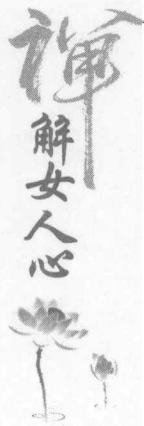 禪
解女人心